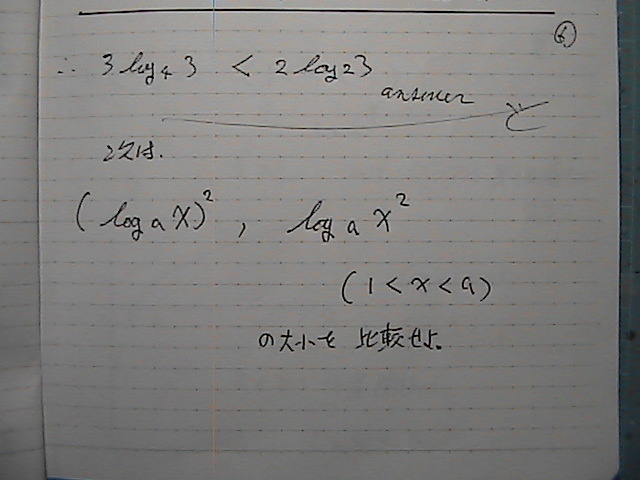 ⑥
∴ 3 log₄ 3 < 2 log₂ 3
answer
次は.
(log a x)², log a x²
(1 < x < a)
の大小を 比較せよ。